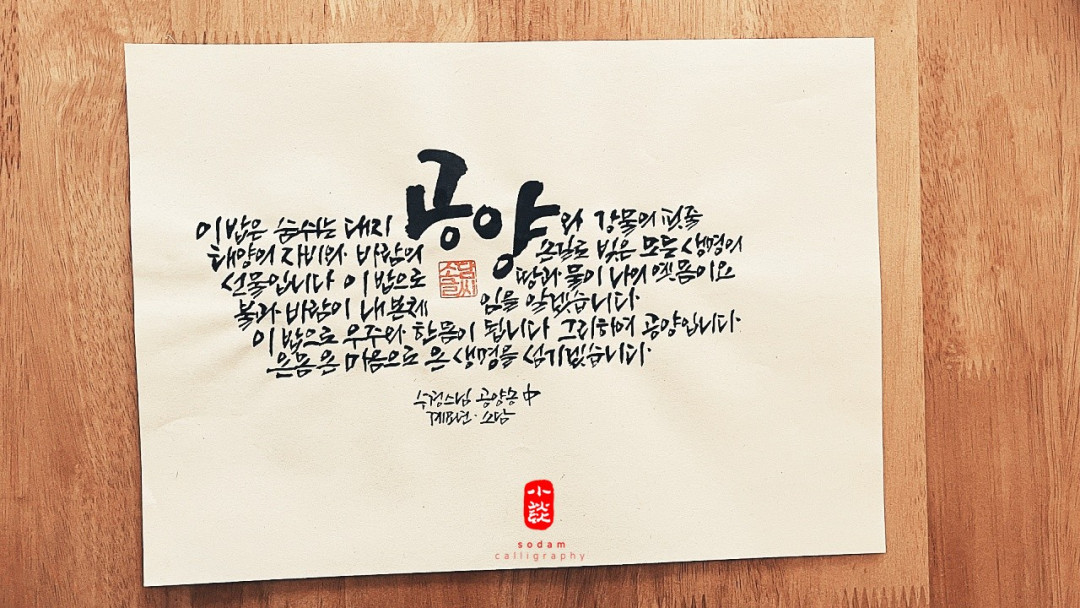 공양
이 밥은 숨쉬는 대지 와 강물의 핏줄
태양의 자비와 바람의 손길로 빚은 모든 생명의
선물입니다 이 밥으로 땅과 물이 나의 옛몸이요
불과 바람이 내 본체 임을 알겠습니다.
이 밥으로 우주와 한몸이 됩니다 그리하여 공양입니다.
온몸 온 마음으로 온 생명을 섬기겠습니다.
수경스님 공양송 中
계묘년·소담
小談
sodam
calligraphy